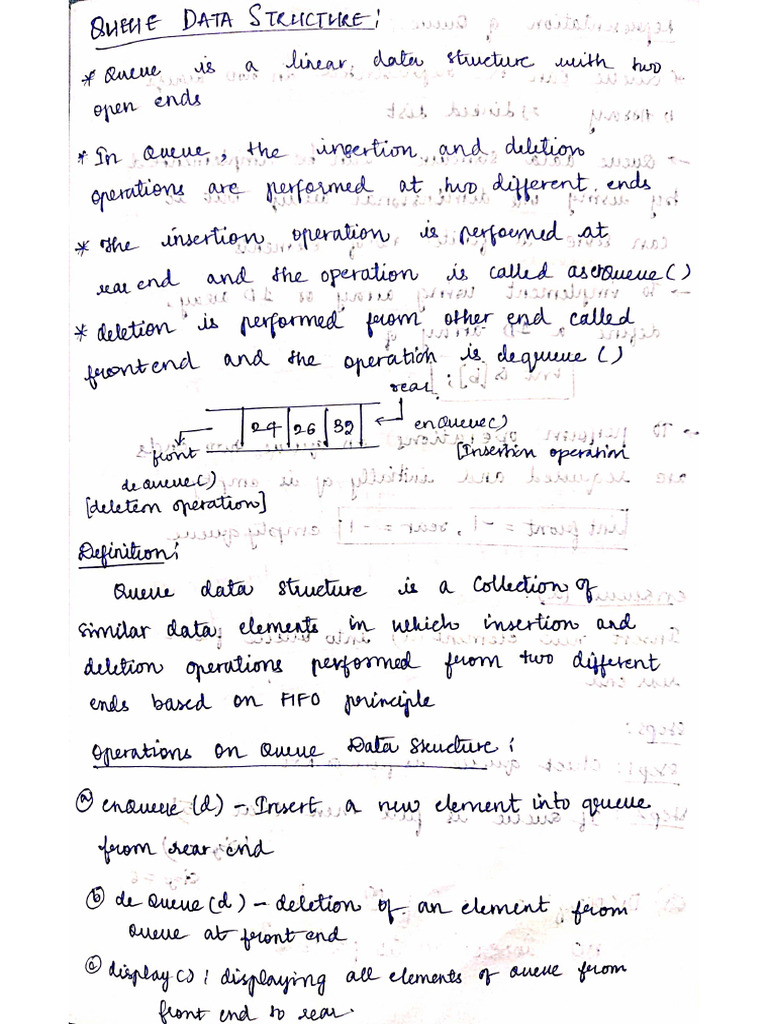 QUEUE DATA STRUCTURE:
* Queue is a linear data structure with two
open ends
* In Queue, the insertion and deletion
operations are performed at two different ends
* The insertion operation is performed at
rear end and the operation is called as enQueue()
* deletion is performed from other end called
front end and the operation is dequeue ()
rear
24 26 32
enQueue()
front
[Insertion operation
deQueue()
[deletion operation]
Definition:
Queue data structure is a collection of
similar data elements in which insertion and
deletion operations performed from two different
ends based on FIFO principle
Operations on Queue Data Structure:
(a) enQueue (d) - Insert a new element into queue
from rear end
(b) de Queue (d) - deletion of an element from
Queue at front end
(c) display() : displaying all elements of queue from
front end to rear.